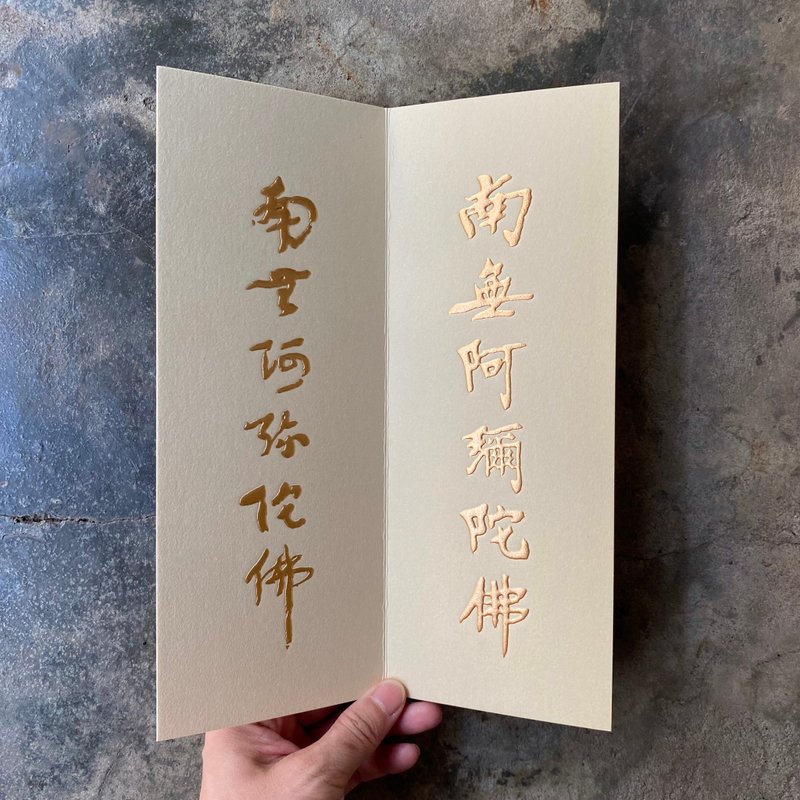 南無阿彌陀佛
南无阿弥陀佛